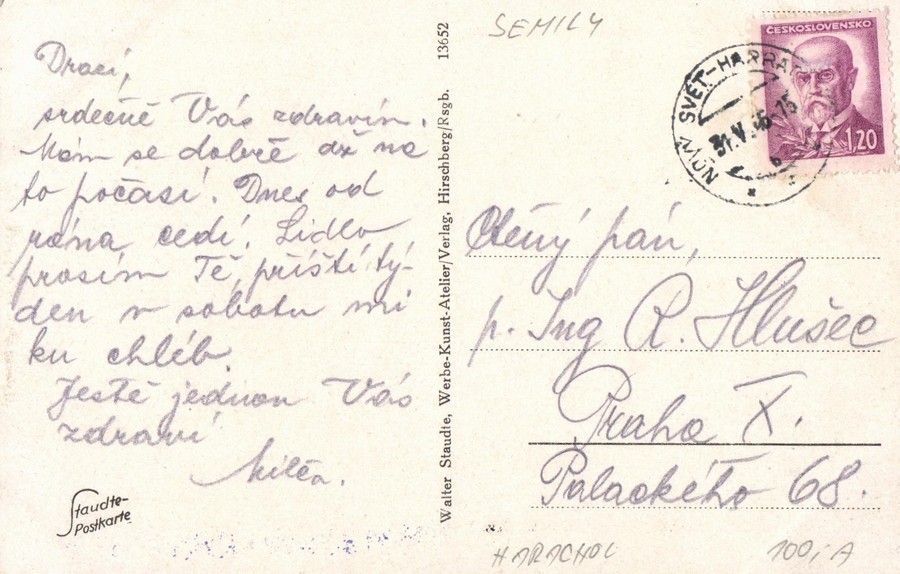 Drazí,
srdečně Vás zdravím.
Mám se dobře až na
to počasí. Dnes od
rána cedí. Lidko
prosím Tě, příští tý-
den v sobotu mi
ku chléb.
Ještě jednou Vás
zdraví
Milča.
Staudte-
Postkarte
Walter Staudte, Werbe-Kunst-Atelier/Verlag, Hirschberg/Rsgb. 13652
SEMILY
ČESKOSLOVENSKO
1,20
NOVÝ SVĚT-HARRA
31.V. -15
Ctěný pán,
p. Ing R. Hlušec
Praha X.
Palackého 68.
HARACHOV
100,- A